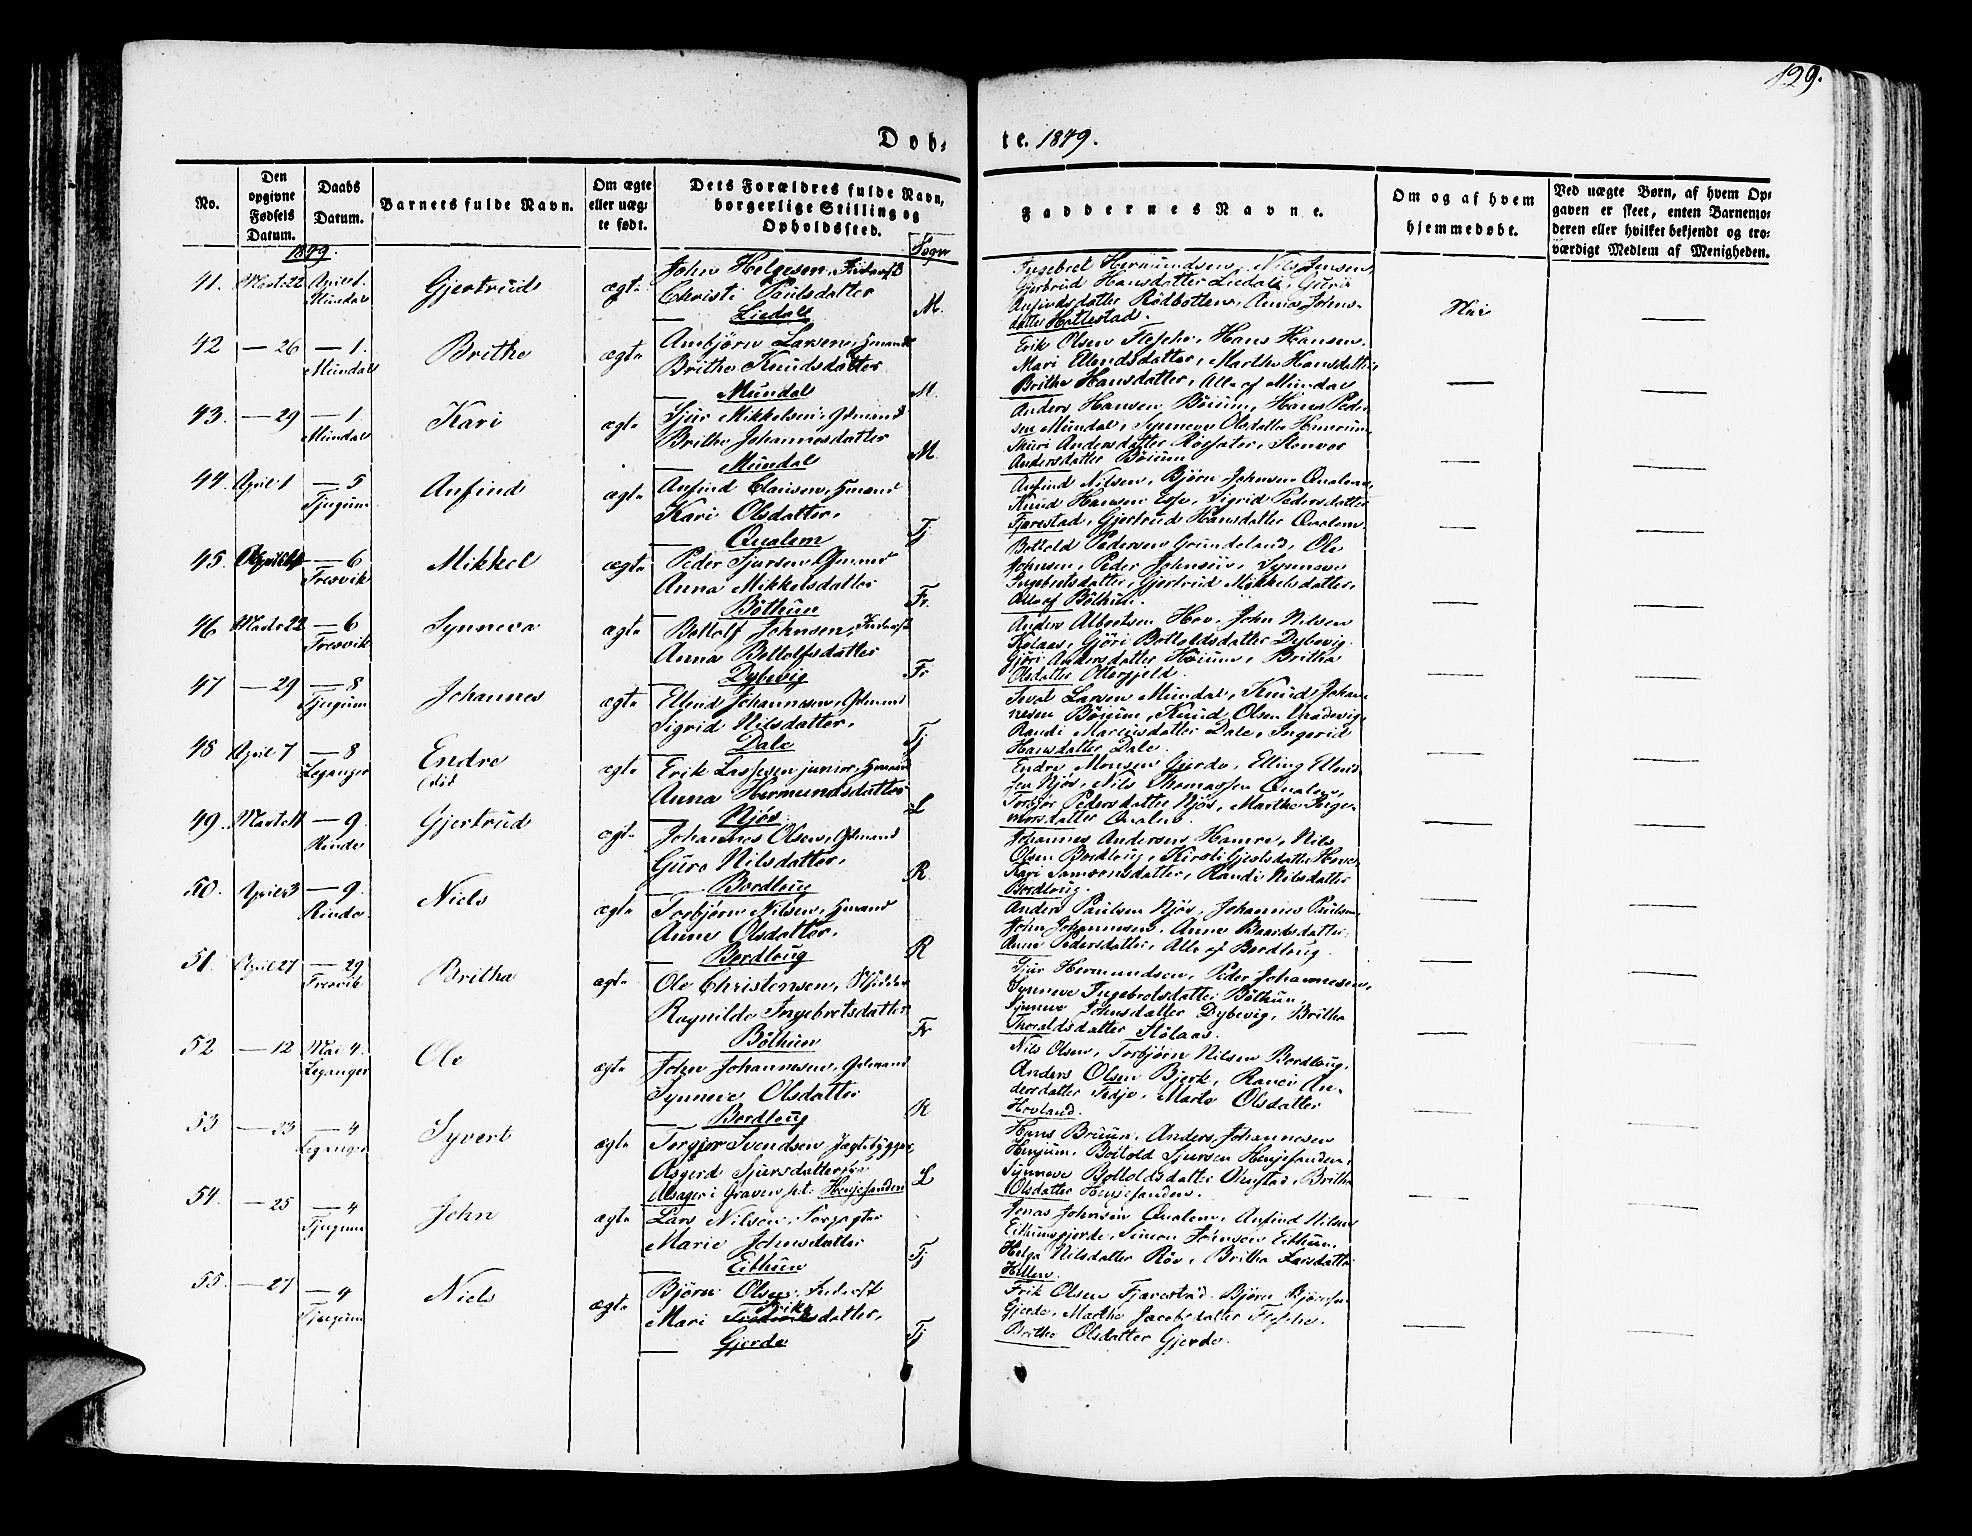 129.
Døb- te. 1849.
No.
Den opgivne Fødsels Datum.
Daabs Datum.
Barnets fulde Navn.
Om ægte eller uægte født.
Dets Forældres fulde Navn, borgerlige Stilling og Opholdssted.
Sogn
Faddernes Navne.
Om og af hvem hjemmedøbt.
Ved uægte Børn, af hvem Opgaven er skeet, enten Barnemoderen eller hvilket bekjendt og troværdigt Medlem af Menigheden.
1849.
41. Marts 22 April 1. Mundal Gjertrud ægte
John Helgesen, Inderst
Christi Paulsdatter
Liedal M.
Ingebret Hermundsen, Nils Jensen,
Gjertrud Hansdatter Liedal,
Anfindsdatter Rødbotten, Anna Johns-
datter Hattestad.
Nei
42 — 26 — 1. Mundal Brithe ægte
Ambjörn Larsen, Hmand
Brithe Knudsdatter
Mundal M.
Erik Olsen, Hans Hansen,
Mari Ellendsdatter, Marthe Hansdatter,
Brithe Hansdatter, Alle af Mundal
43. — 29 — 1. Mundal Kari ægte
Sjur Mikkelsen, Gmand
Brithe Johannesdatter
Mundal M.
Anders Hansen Böium, Hans Peder-
sen Mundal, Synneve Olsdatter
Andersdatter
Andersdatter Böium
44. April 1 — 5 Tjugum Anfind ægte
Anfind Clausen, Hmand
Kari Olsdatter,
Qualem Tj
Anfind Nilsen, Björn Johnsen Qualem,
Knud Hansen Esse, Sigrid Pedersdatter
Fjærestad, Gjertrud Hansdatter Qualem.
45. April — 6 Fresvik Mikkel ægte
Peder Sjursen, Gmand
Anna Mikkelsdatter
Böthun Fr.
Bottold Pedersen Grundeland, Ole
Johnsen, Peder Johnsen, Synneve
Ingebretsdatter, Gjertrud Mikkelsdatter,
Alle af Böthun.
46 Marts 22 — 6 Fresvik Synneva ægte
Bottolf Johnsen, Inderst
Anna Bottolfsdatter
Dybevig Fr
Anders Albertsen Hov, John Nilsen
Kolaas, Gjöri Bottoldsdatter Dybevig.
Gjöri Andersdatter Høium, Britha
Olsdatter Otterfjeld.
47 — 29 — 8 Tjugum Johannes ægte
Ellend Johannesen, Gmand
Sigrid Nilsdatter,
Dale Tj
Larsen Mundal, Knud Johan-
nesen Böium, Knud Olsen
Randi Mariusdatter Dale, Ingerid
Hansdatter Dale.
48 April 7 — 8 Leganger Endre (död ægte
Erik Lassesen junior, Hmand
Anna Hermundsdatter
Njøs L
Endre Monsen Gjerde, Elling Ellend-
sen Njøs, Nils Thomassen Qualem,
Torbjør Pedersdatter Njøs, Marthe Inge-
morsdatter Qualem.
49. Marts — 9. Rinde Gjertrud ægte
Johannes Olsen, Gmand
Guro Nilsdatter,
Bordloug R.
Johannes Andersen Hamre, Nils
Olsen Bordloug, Kirsti Gjertsdatter
Kari Samsonsdatter, Randi Nilsdatter
Bordloug.
50. April 3 — 9. Rinde Niels ægte
Torbjörn Nilsen, Hmand
Anne Olsdatter,
Bordloug R
Anders Paulsen Njøs, Johannes Paulsen
John Johannesen, Anne Baardsdatter
Anne Pedersdatter, Alle af Bordloug.
51. April 27 — 29 Fresvik Britha ægte
Ole Christensen,
Ragnilde Ingebretsdatter
Böthun Fr
Sjur Hermundsen, Peder Johannesen,
Synneve Ingebretsdatter Böthun,
Synneve Johnsdatter Dybevig, Britha
Thoraldsdatter Stölaas.
52 — 12 Mai 4. Leganger Ole ægte
John Johannesen, Gmand
Synneve Olsdatter
Bordloug R
Nils Olsen, Torbjörn Nilsen Bordloug,
Anders Olsen Bjerk, Randi An-
dersdatter Fedje, Marta Olsdatter
Hovland.
53 — 23 — 4 Leganger Syvert ægte
Torgjer Svendsen, Jagtebygger,
Asgerd Sjursdatter
i Graven p.t. Henjesanden L
Hans Bruun, Anders Johannesen
Henjum, Botold Sjursen Henjesanden,
Synneve Bottoldsdatter, Britha
Olsdatter Henjesanden.
54. — 25 — 4 Tjugum John ægte
Lars Nilsen,
Marie Johnsdatter
Eithun Tj
Jonas Johnsen Qualem, Anfind Nilsen
Eithunsgjerde, Simon Johnsen Eithun,
Helga Nilsdatter Röv, Britha Larsdatter
Hillen.
55. — 27 — 4 Tjugum Niels ægte
Björn Olsen, Inderst
Mari Eriksdatter,
Gjerde Tj
Erik Olsen Fjærestad, Björn Björnsen
Gjerde, Marthe Jacobsdatter
Brithe Olsdatter Gjerde.